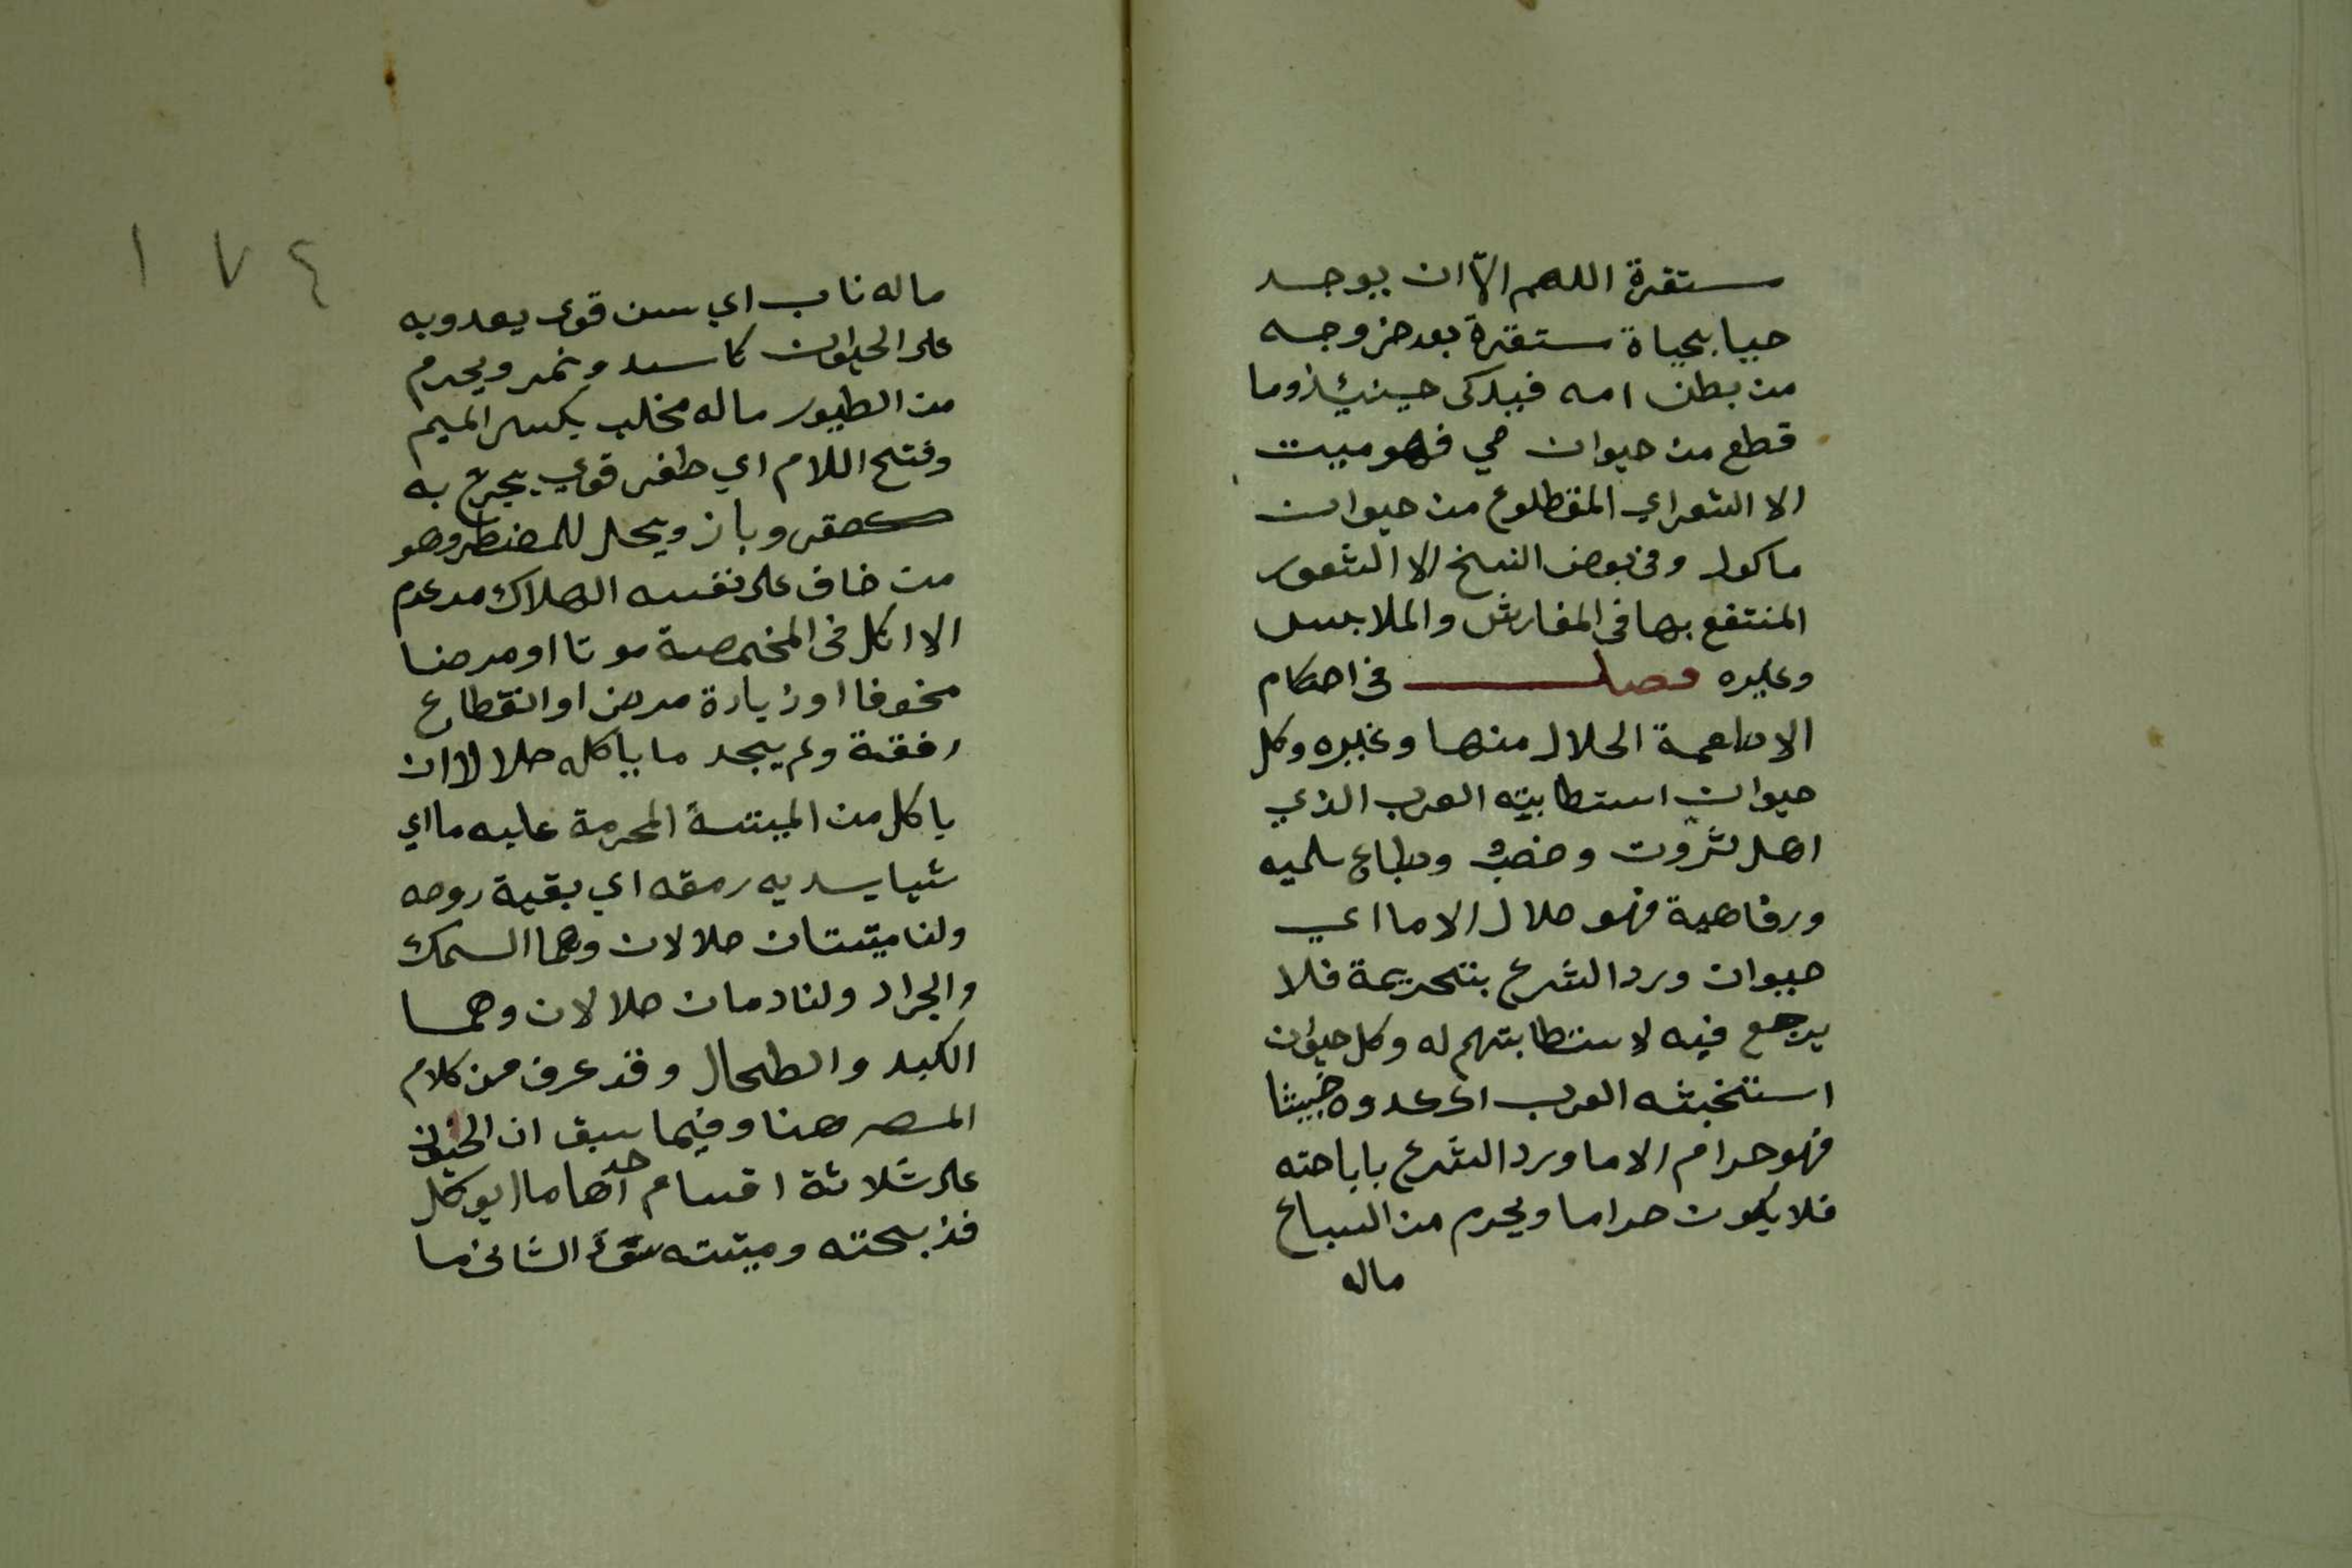 مستقرة اللهم الاّ ان يوجد
حيا بحياة مستقرة بعد خروجه
من بطن امه فيذكى حينئذ وما
قطع من حيوان حي فهو ميت
الا الشعر اي المقطلوع من حيوان
ماكول وفي بعض النسخ الا الشعور
المنتفع بها في المفارش والملابس
وغيره فصل في احكام
الاطعمة الحلال منها وغيره وكل
حيوان استطابته العرب الذي
اهل ثروت وخصب وطباع سلميه
ورفاهية فهو حلال الا ما اي
حيوان ورد الشرع بتحريمة فلا
يرجع فيه لاستطابتهم له وكل حيوان
استخبثه العرب اي عدوه خبيثا
فهو حرام الا ما ورد الشرع باباحته
فلا يكون حراما ويحرم من السباع
ماله
١٧٤
ماله ناب اي سن قوي يعدو به
على الحيوان كاسد ونمر ويحرم
من الطيور ماله مخلب بكسر الميم
وفتح اللام اي ظفر قوي يجرح به
كصقر وباز ويحل للمضطر وهو
من خاف على نفسه الهلاك من عدم
الاكل في المخمصة موتا او مرضا
مخوفا او زيادة مرض او انقطاع
رفقة ولم يجد ما ياكله حلالا ان
ياكل من الميتسة المحرمة عليه ما اي
شيا يسد به رمقه اي بقية روحه
ولنا ميتتان حلالان وهما السمك
والجراد ولنا دمان حلالان وهما
الكبد والطحال وقد عرف من كلام
المصر هنا وفيما سبق ان الحيوان
على ثلاثة اقسام احدها مالا يوكل
فذبيحته وميتته سوَاء الثاني ما